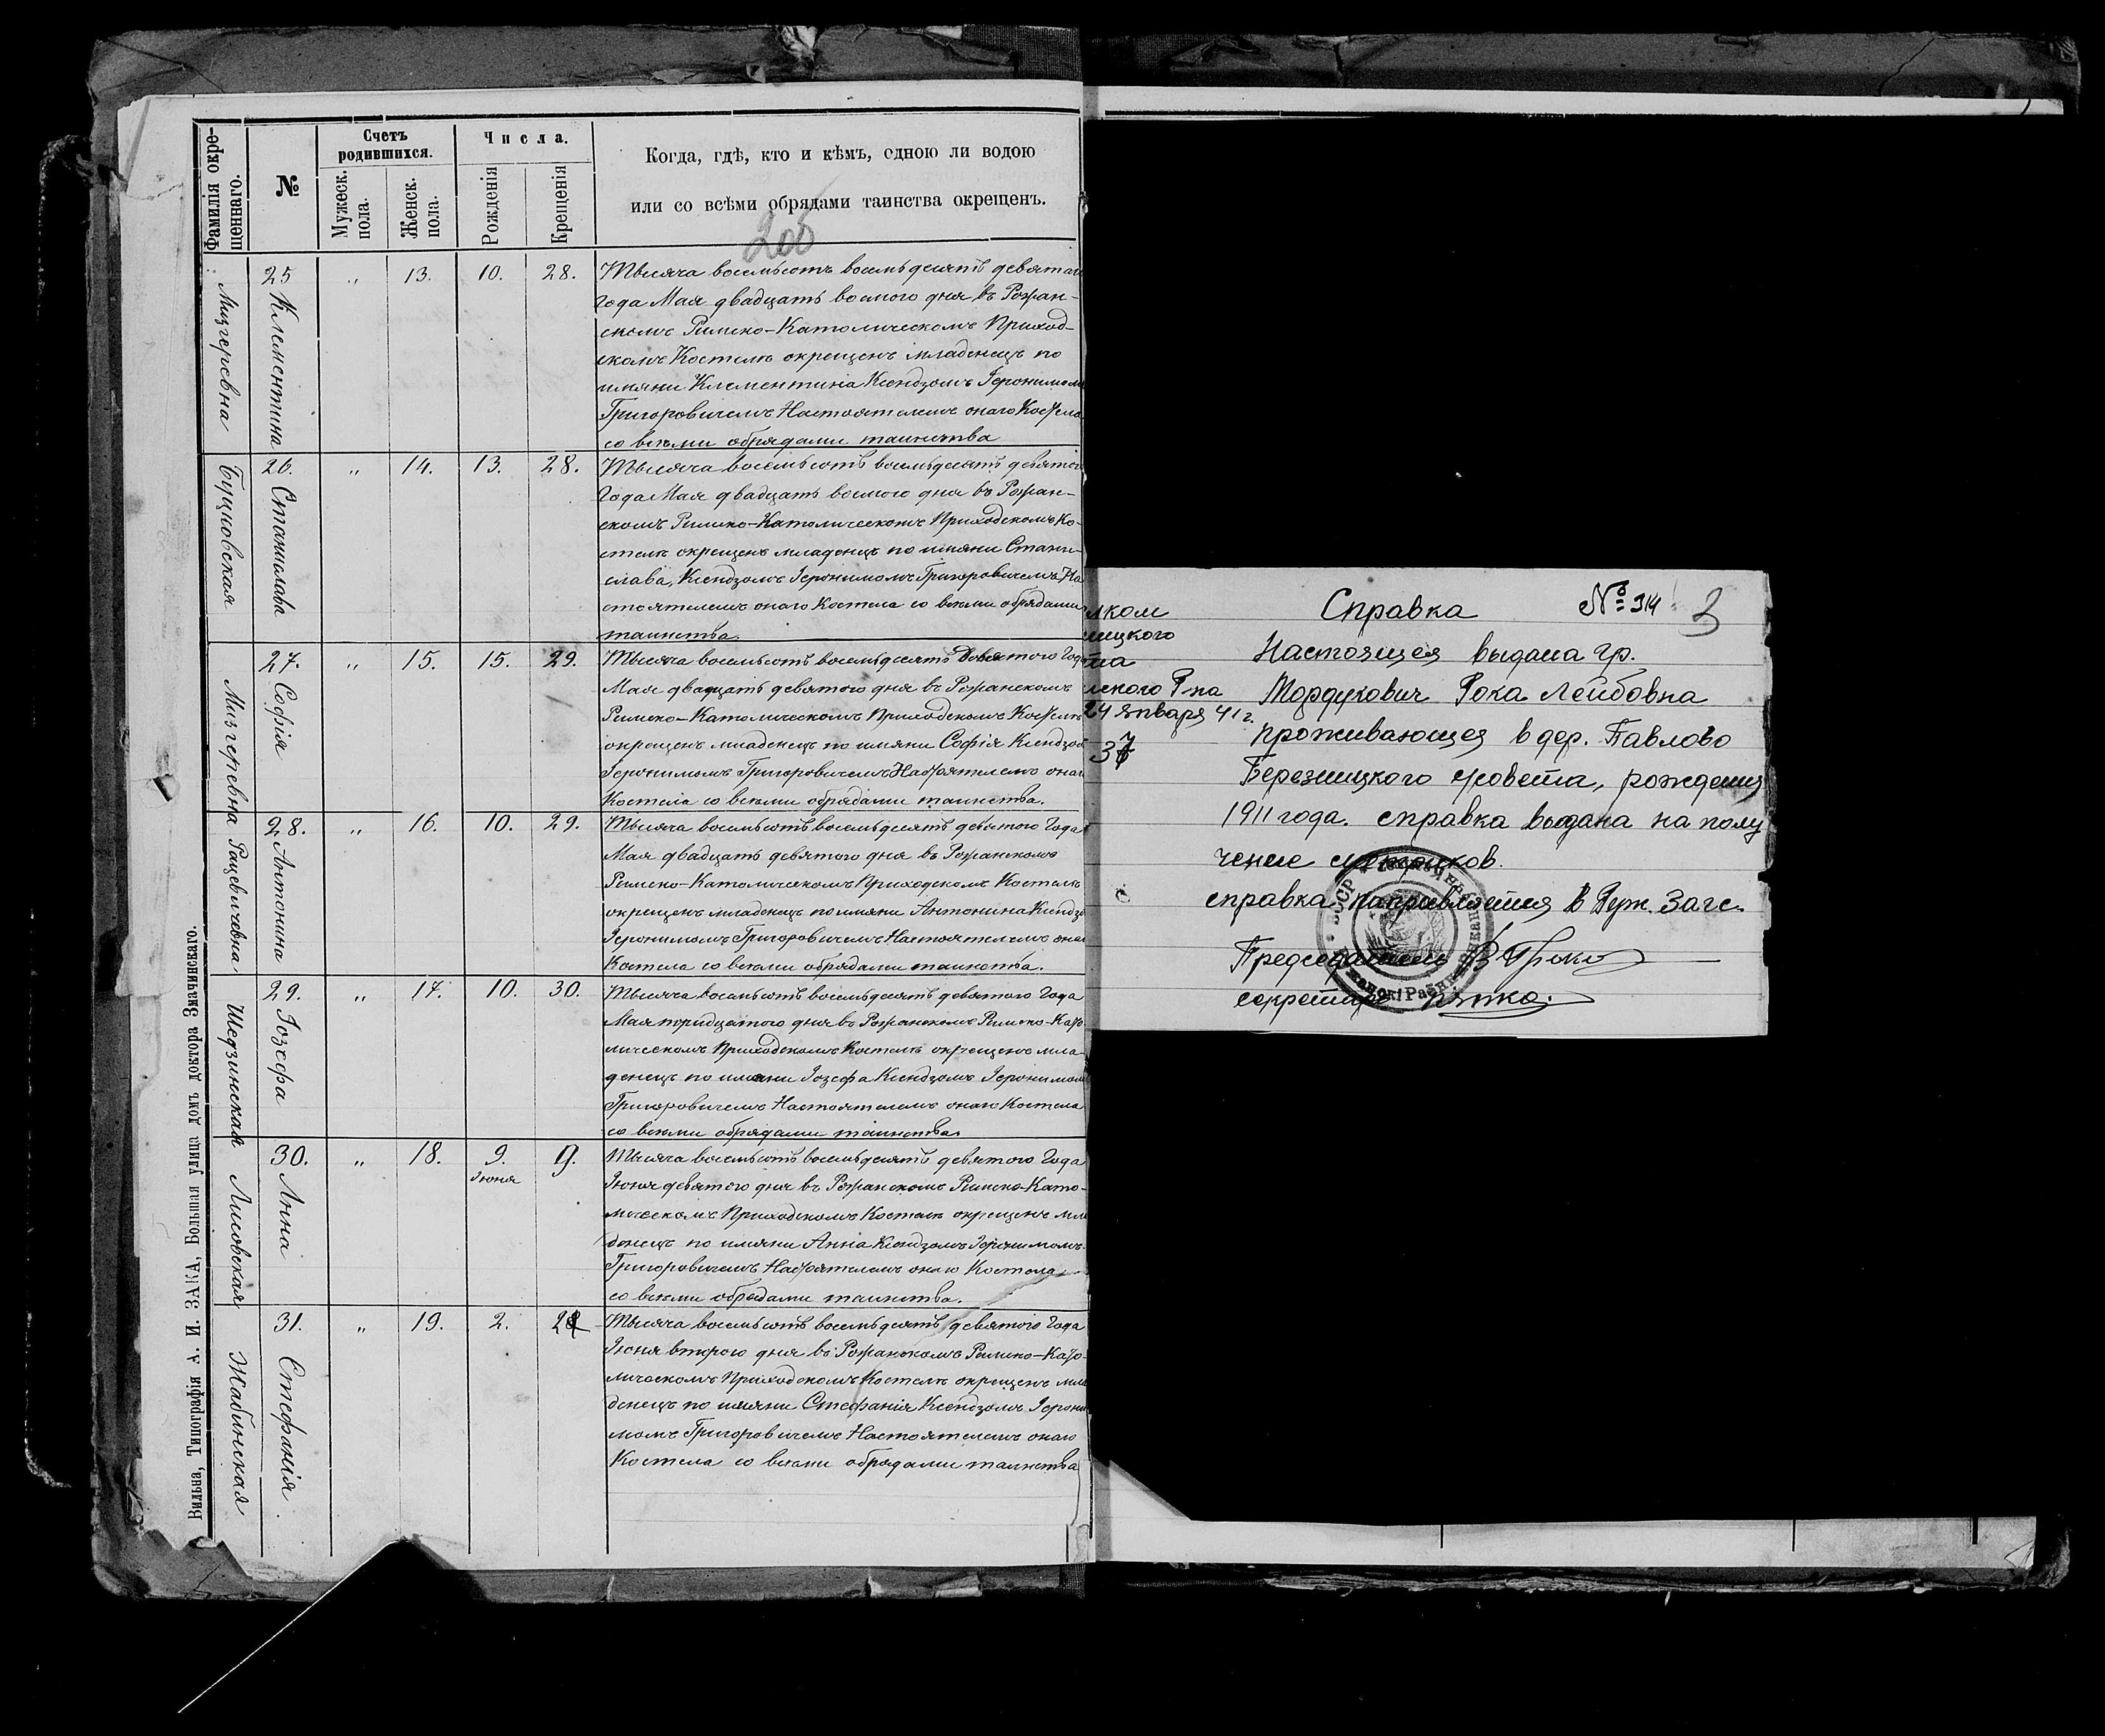 Фамилія окре-
щеннаго.
№
Счетъ
родившихся.
Мужеск.
пола.
Женск.
пола.
Числа.
Рожденія
Крещенія
Когда, гдѣ, кто и кѣмъ, одною ли водою
или со всѣми обрядами таинства окрещенъ.
Мизгеревна
25
Клементина
„
13.
10.
28.
Тысяча восемьсотъ восемьдесятъ девятаго
Года Мая двадцать восмого дня въ Рожан-
скомъ Римско-Католическомъ Приход-
скомъ Костелѣ окрещенъ младенецъ по
имяни Клементина Ксендзомъ Іеронимомъ
Григоровичемъ Настоятелемъ онаго Костела
со всѣми обрядами таинства
Буцновская
26.
Станислава
„
14.
13.
28.
Тысяча восемьсотъ восемьдесятъ девятого
Года Мая двадцать восмого дня въ Рожан-
скомъ Римско-Католическомъ Приходскомъ Ко-
стелѣ окрещенъ младенецъ по имяни Стани-
слава, Ксендзомъ Іеронимомъ Григоровичемъ На
стоятелемъ онаго Костела со всѣми обрядами
таинства.
Мизгеревна
27.
Софія
„
15.
15.
29.
Тысяча восемьсотъ восемьдесятъ Девятого Года
Мая двадцать девятого дня въ Рожанскомъ
Римско-Католическомъ Приходскомъ Костелѣ
окрещенъ младенецъ по имяни Софія Ксендзом
Іеронимомъ Григоровичемъ Настоятелемъ онаго
Костела со всѣми обрядами таинства.
Рацевичевна
28.
Антонина
„
16.
10.
29.
Тысяча восемьсотъ восемьдесятъ девятого Года
Мая двадцать девятого дня въ Рожанскомъ
Римско-Католическомъ Приходскомъ Костелѣ
окрещенъ младенецъ по имяни Антонина Ксендзо
Іеронимомъ Григоровичемъ Настоятелемъ онаго
Костела со всѣми обрядами таинства.
Шедзинская
29.
Іозефа
„
17.
10.
30.
Тысяча восемьсотъ восемьдесятъ девятого Года
Мая тридцатого дня въ Рожанскомъ Римско-Като
лическомъ Приходскомъ Костелѣ окрещенъ мла-
денецъ по имяни Іозефа Ксендзомъ Іеронимомъ
Григоровичемъ Настоятелемъ онаго Костела
со всѣми обрядами таинства.
Лисовская
30.
Анна
„
18.
9.
Іюня
9.
Тысяча восемьсотъ восемьдесятъ девятого Года
Іюня девятого дня въ Рожанскомъ Римско-Като-
лическомъ Приходскомъ Костелѣ окрещенъ мла
денецъ по имяни Анна Ксендзомъ Іеронимомъ
Григоровичемъ Настоятелемъ онаго Костела
со всѣми обрядами таинства.
Жабинская
31.
Стефанія.
„
19.
2.
Тысяча восемьсотъ восемьдесятъ девятого Года
Іюня второго дня въ Рожанскомъ Римско-Като-
лическомъ Приходскомъ Костелѣ окрещенъ мла
денецъ по имяни Стефанія Ксендзомъ Іерони
момъ Григоровичемъ Настоятелемъ онаго
Костела со всѣми обрядами таинства
Вильна, Типографія А. И. ЗАКА, Большая улица домъ доктора Змачинскаго.
лком
ицкого
та
ского Р-на
24 января 41 г.
37
Справка № 314 3
Настоящея выдана гр.
Мордукович Рока Лейбовна
проживающея в дер. Павлово
Березницкого с/совета, рождения
1911 года. справка выдана на полу
чение
справка направляется в Руж. Загс.
Председатель
секретарь